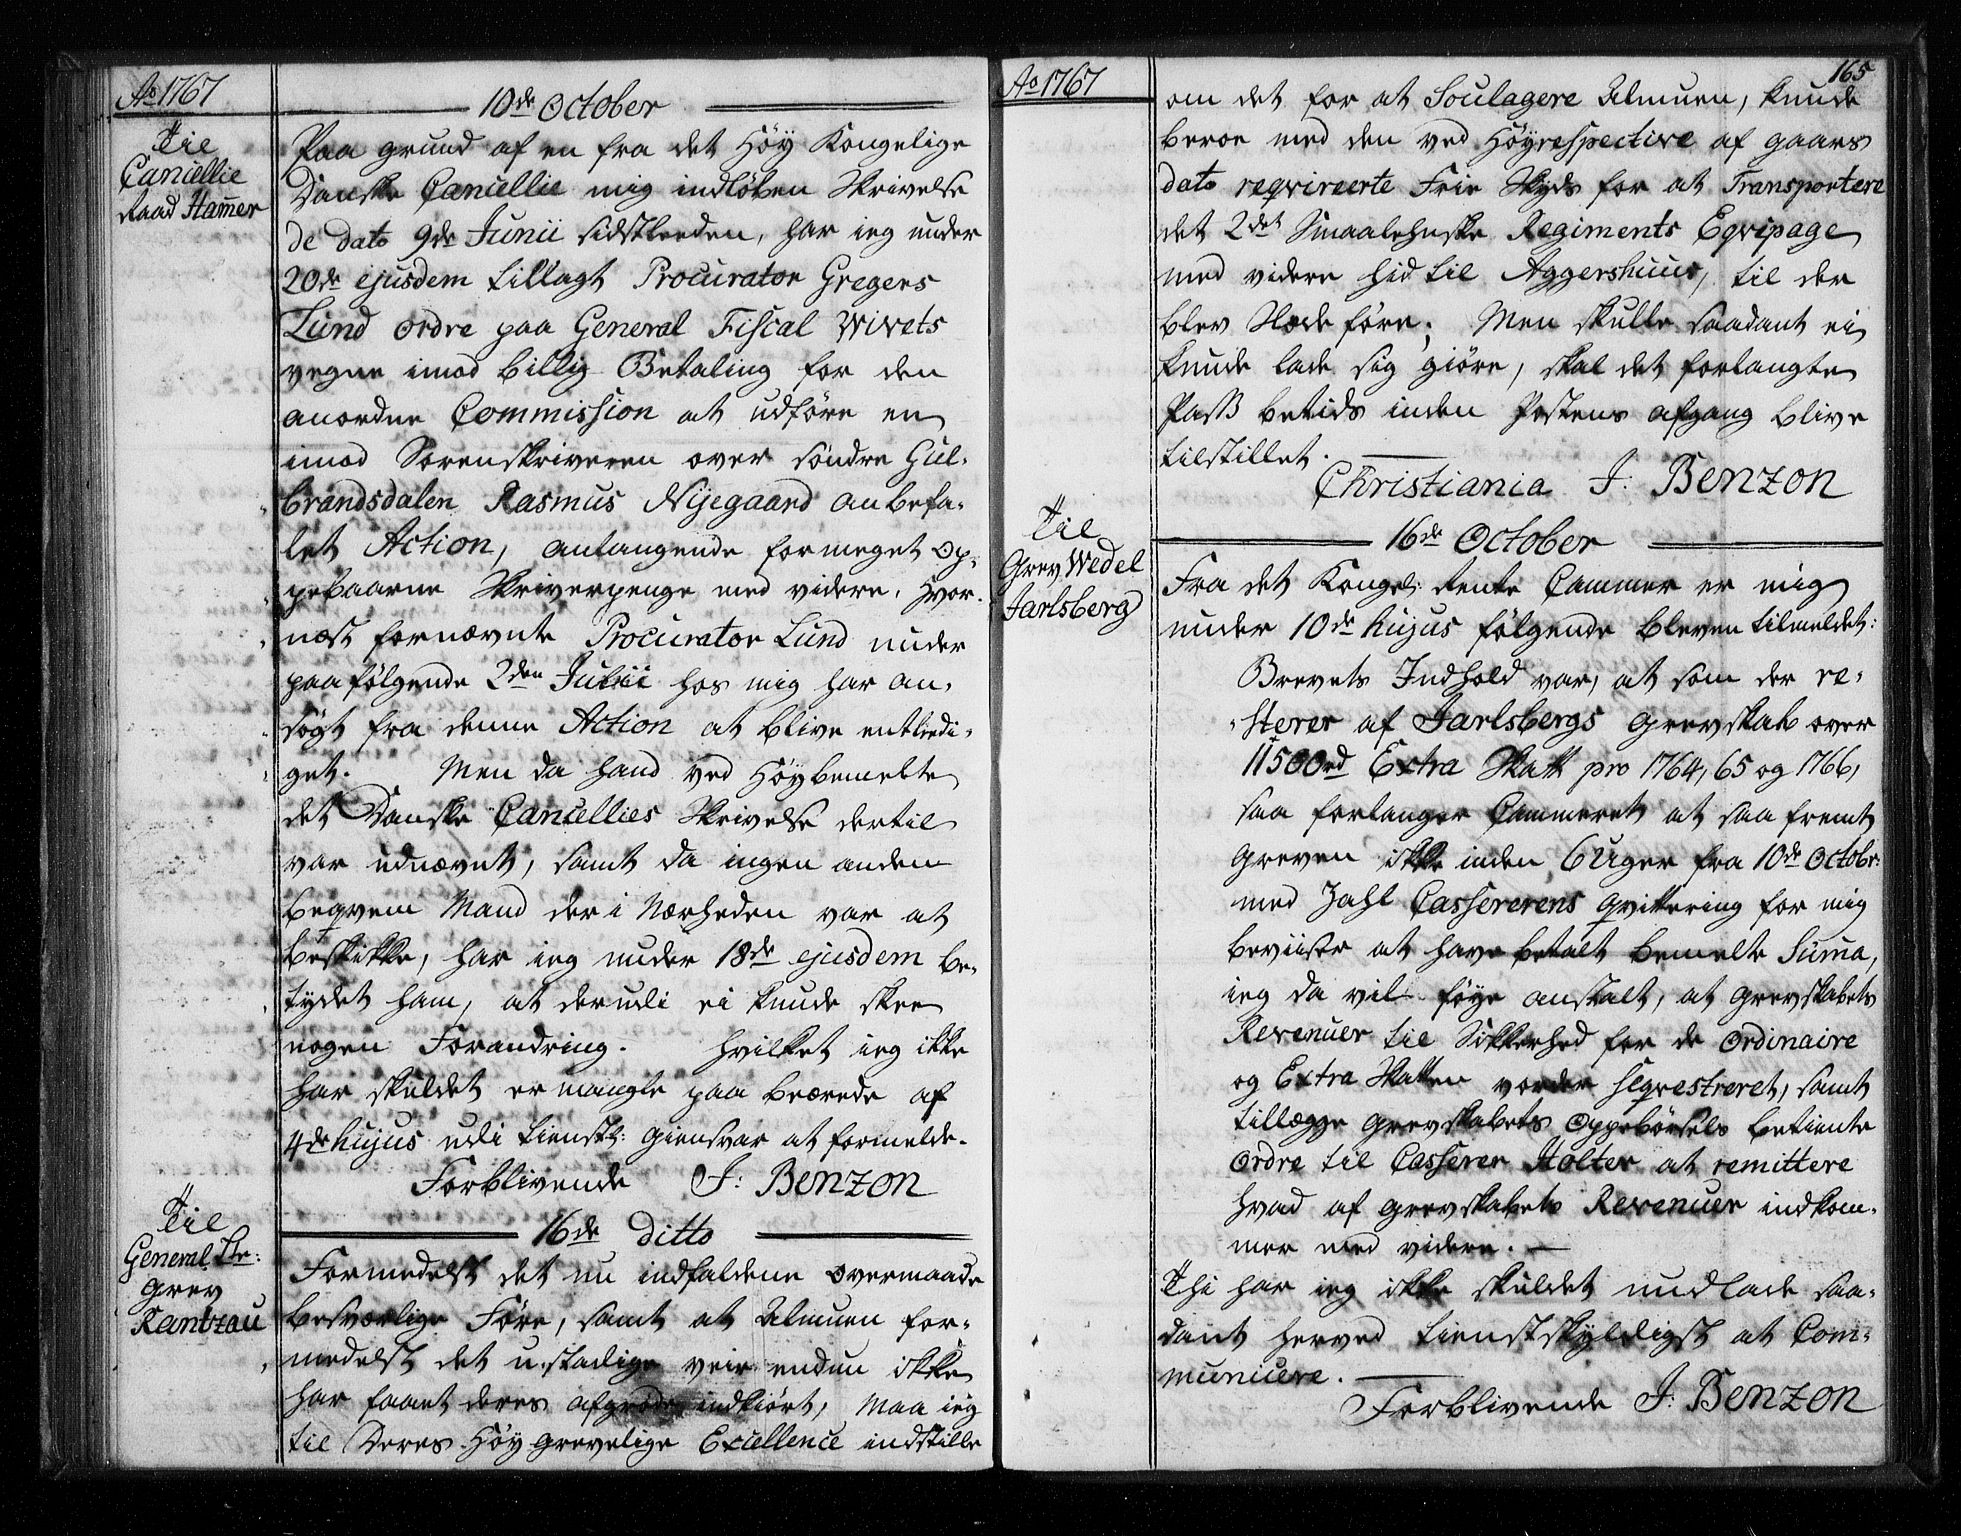 Ao 1767
10de October
Til
Cancellie
Raad Hamer
Paa grund af en fra det Höy Kongelige
Danske Cancellie mig indløben Skrivelse
de dato 9de Junii sidstleeden, har ieg under
20de ejusdem tillagt Procurator Gregers
Lund ordre paa General Fiscal Wivets
vegne imod billig Betaling for den
anordne Commission at udføre en
imod Sorenskriveren over søndre Gul-
brandsdalen Rasmus Nyegaard anbefa-
let Action, antangende formeget op-
pebaarne Skriverpenge med videre, hvor-
næst fornævnte Procurator Lund under
paafølgende 2den Julii hos mig har an-
søgt fra denne Action at blive entledi-
get. Men da hand ved Höybemelte
det Danske Cancellies Skrivelse dertil
var udnævnt, samt da ingen anden
beqvem Mand der i Nærheden var at
beskikke, har ieg under 18de ejusdem be-
tydet ham, at derudi ei kunde skee
nogen Forandring. hvilket ieg ikke
har skuldet ermangle paa beærede af
4de hujus udi tienstl: giensvar at formelde.
Forblivende J: Benzon
16de ditto
Til
General Lte:
Grev
Rantzau
Formedelst det nu indfaldene overmaade
besværlige Føre, samt at Almuen for-
medelst det u-stadige veir endnu ikke
har faaet deres afgrøde indkiørt, Maa ieg
til Deres Höy grevelige Excellence indstille
Ao 1767
165
om det for at Soulagere Almuen, kunde
beroe med den ved Höyrespective af gaars
dato reqvireerte Frie Skyds for at Transportere
det 2det Smaalehnske Regiments Eqvipage
med videre hid til Aggershuus, til der
blev Slæde føre; Men skulle saadant ei
kunde lade sig giöre, skal det forlangte
Pass betids inden Postens afgang blive
tilstillet.
Christiania J: Benzon
16de October
Til
Grev Wedel
Jarlsberg
Fra det Kongel: Rente Cammer er mig
under 10de hujus følgende bleven tilmeldet:
Brevets Indhold var, at som der re-
sterer af Jarlsbergs Grevskab over
11500rd Extra Skatt pro 1764, 65 og 1766,
saa forlanger Cammeret at saafremt
Greven ikke inden 6 Uger fra 10de Octobr:
med Zahl Cassererens qvittering for mig
beviiser at have betalt bemelte Suma,
ieg da vil føye anstalt, at grevskabets
Revenuer til Sikkerhed for de Ordinaire
og Extra Skatten vorder seqvestreret, samt
tillægge Grevskabets Oppebørsels betiente
ordre til Casserer Holter at remittere
hvad af grevskabets Revenuer indkom-
mer med videre.
Thi har ieg ikke skuldet undlade saa-
dant herved tienstskyldigst at Com-
municere.
Forblivende J: Benzon